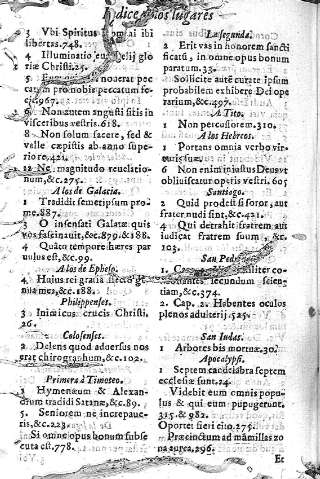 Indice de los lugares
3 Vbi Spiritus Domini ibi
libertas.748.
4 Illuminatio Euangelij glo
riæ Christi.25.
5 Eum qui non nouerat pec
catum pro nobis peccatum fe-
cit.967.
6 Non autem angusti sitis in
visceribus vestris.618.
8 Non solum facere, sed &
velle cæpistis ab anno supe-
riore.421.
12 Ne magnitudo reuelatio-
num,&c.275.
A los de Galacia.
1 Tradidit semetipsum pro
me.887.
3 O insensati Galatæ quis
vos fascinauit,&c.879.&188.
4 Quāto tempore hæres par
uulus est,&c.99.
A los de Epheso.
4 Huius rei gratia flecto ge-
nua mea,&c.188.
Philippenses.
3 Inimicus crucis Christi.
26.
Colosenses.
2 Delens quod aduersus nos
erat chirographum,&c.102.
Primera à Timoteo.
1 Hymenæum & Alexan-
drum tradidi Satanæ,&c.89.
5. Seniorem ne increpaue-
ris,&c.223.
Si omne opus bonum subse
cuta est.778.
La segunda.
2 Erit vas in honorem sancti
ficatū, in omne opus bonum
paratum.33.
Sollicite autē curate ipsum
probabilem exhibere Deo ope
rarium,&c.497.
A Tito.
1 Non percussorem.310.
A los Hebreos.
1 Portans omnia verbo vir-
tutis suæ.
6 Non enim iniustus Deus vt
obliuiscatur operis vestri.605
Santiago.
2 Quid prodest si soror, aut
frater nudi sint,&c.421.
4 Qui detrahit fratrem aut
iudicat fratrem suum, &c.
103.
San Pedro
1. co-
habitantes secundum scien-
tiam,&c.374.
2. Cap. 2. Habentes oculos
plenos adulterij.525.
San Iudas.
1 Arbores bis mortuæ.30.
Apocalyps.
1 Septem candelabra septem
ecclesiæ sunt.24.
Videbit eum omnis popu-
lus & qui eum pupugerunt.
315.& 982.
Oportet fieri cito.275.
Præcinctum ad mamillas zo
na aurea.296.
Et